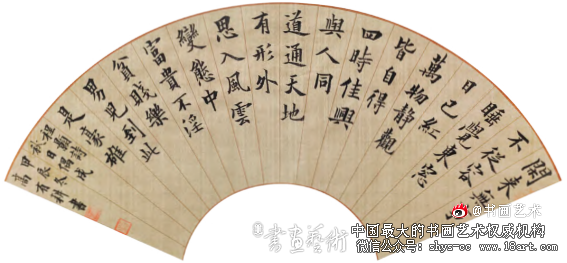 閒來無事
不從容
睡覺東窓
日已紅
萬物靜觀
皆自得
四時佳興
與人同
道通天地
有形外
思入風雲
變態中
富貴不淫
貧賤樂
男兒到此
是豪雄
程顥詩
秋日偶成
甲辰冬
@书画艺术
書畫藝術
中国最大的书画艺术权威机构
微信公众号：shys-cc www.18art.com